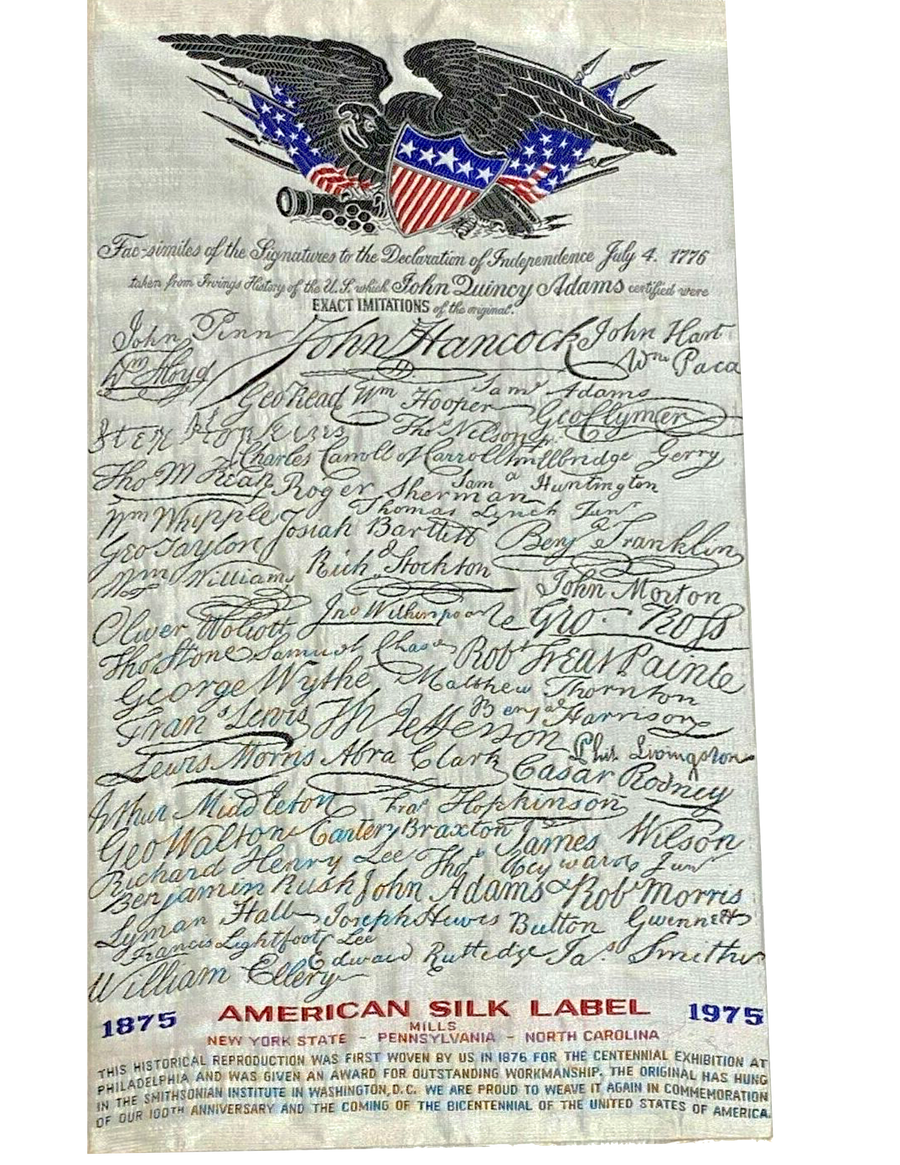 Fac-similes of the Signatures to the Declaration of Independence July 4. 1776
taken from Irvings History of the U.S. which John Quincy Adams certified were
EXACT IMITATIONS of the original.
John Penn John Hancock John Hart
Wm Floyd Wm Paca
Geo Read Wm Hooper Saml Adams Geo Clymer
Step Hopkins Thos Nelson jr.
Charles Carroll of Carrollton Elbridge Gerry
Tho M Kean Roger Sherman Sam el Huntington
Wm Whipple Josiah Bartlett Thomas Lynch Junr
Geo Taylor Benj a Franklin
Wm Williams Richd Stockton John Morton
Oliver Wolcott Jno Witherspoon Geo. Ross
Tho Stone Samuel Chase Robt Treat Paine
George Wythe Matthew Thornton
Frans Lewis Th Jefferson Benja Harrison
Lewis Morris Abra Clark Phil Livingston
Casar Rodney
Arthur Middleton Fras Hopkinson
Geo Walton Carter Braxton James Wilson
Richard Henry Lee Thos Heyward Junr
Benjamin Rush John Adams Robt Morris
Lyman Hall Joseph Hewes Button Gwinnett
Francis Lightfoot Lee
William Ellery Edward Rutledge Jas. Smith
1875 AMERICAN SILK LABEL 1975
MILLS
NEW YORK STATE - PENNSYLVANIA - NORTH CAROLINA
THIS HISTORICAL REPRODUCTION WAS FIRST WOVEN BY US IN 1876 FOR THE CENTENNIAL EXHIBITION AT
PHILADELPHIA AND WAS GIVEN AN AWARD FOR OUTSTANDING WORKMANSHIP. THE ORIGINAL HAS HUNG
IN THE SMITHSONIAN INSTITUTE IN WASHINGTON, D.C. WE ARE PROUD TO WEAVE IT AGAIN IN COMMEMORATION
OF OUR 100TH ANNIVERSARY AND THE COMING OF THE BICENTENNIAL OF THE UNITED STATES OF AMERICA.